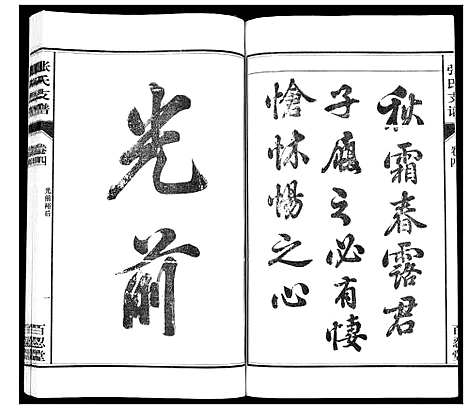 张氏支谱
卷四
秋霜春露君
子履之必有悽
愴怵惕之心
百忍堂
光前
张氏支谱
卷四
光前裕后
一
百忍堂